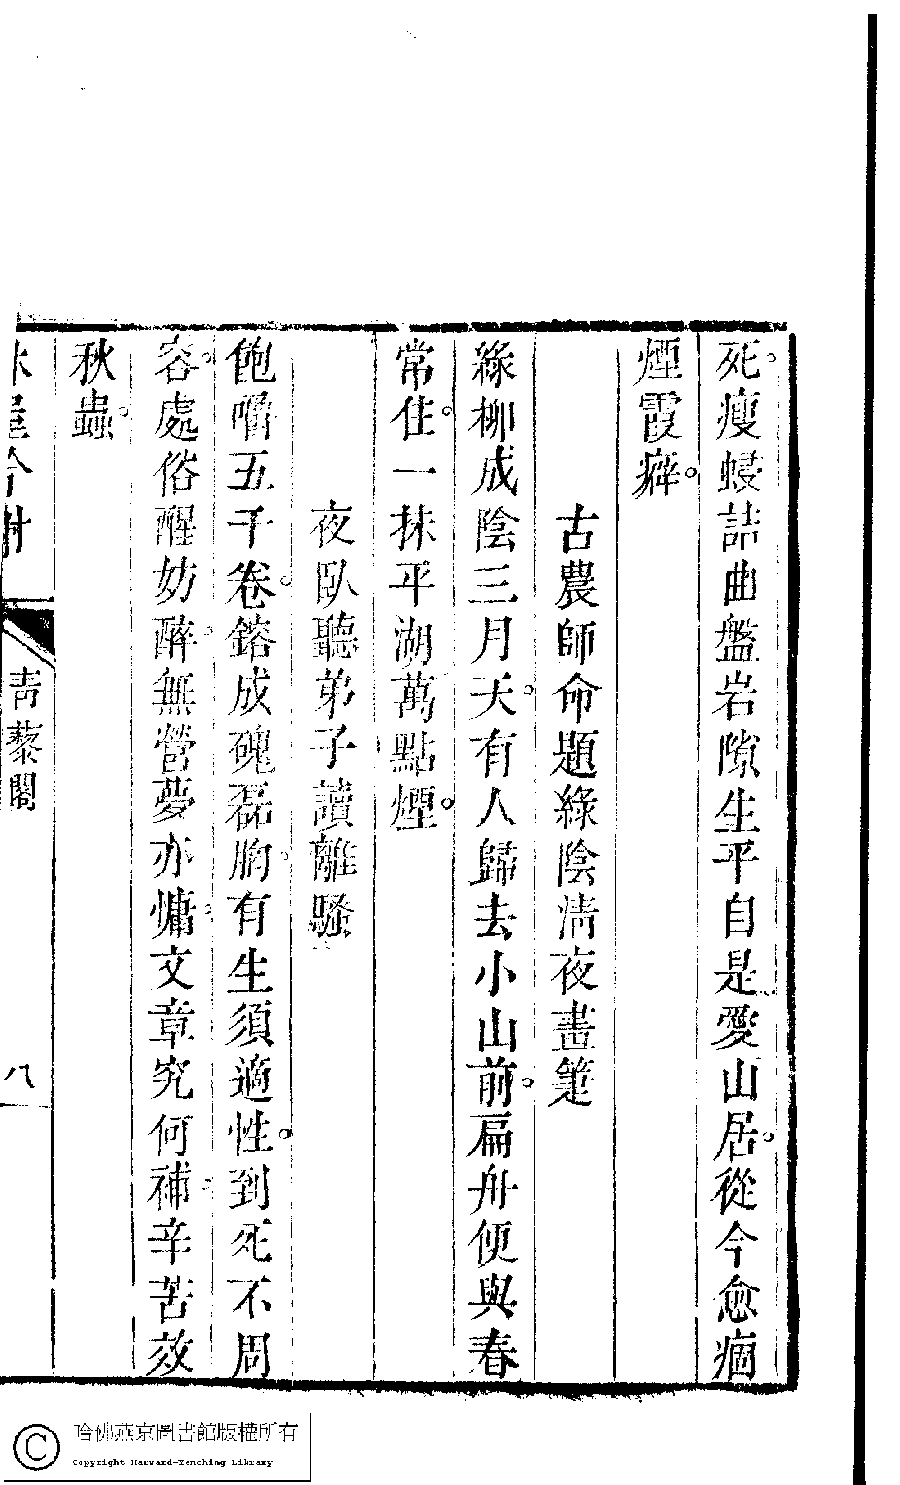 死瘦蛟詰曲盤岩隙生平自是愛山居從今愈痼
煙霞癖
古農師命題綠陰清夜畫箑
綠柳成陰三月天有人歸去小山前扁舟便與春
常住一抹平湖萬點煙
夜臥聽弟子讀離騷
飽嚼五千卷鎔成磈磊胸有生須適性到死不周
容處俗醒妨醉無營夢亦慵文章究何補辛苦效
秋蟲
青藜閣
八
哈佛燕京圖書館版權所有
Copyright Harvard-Yenching Library